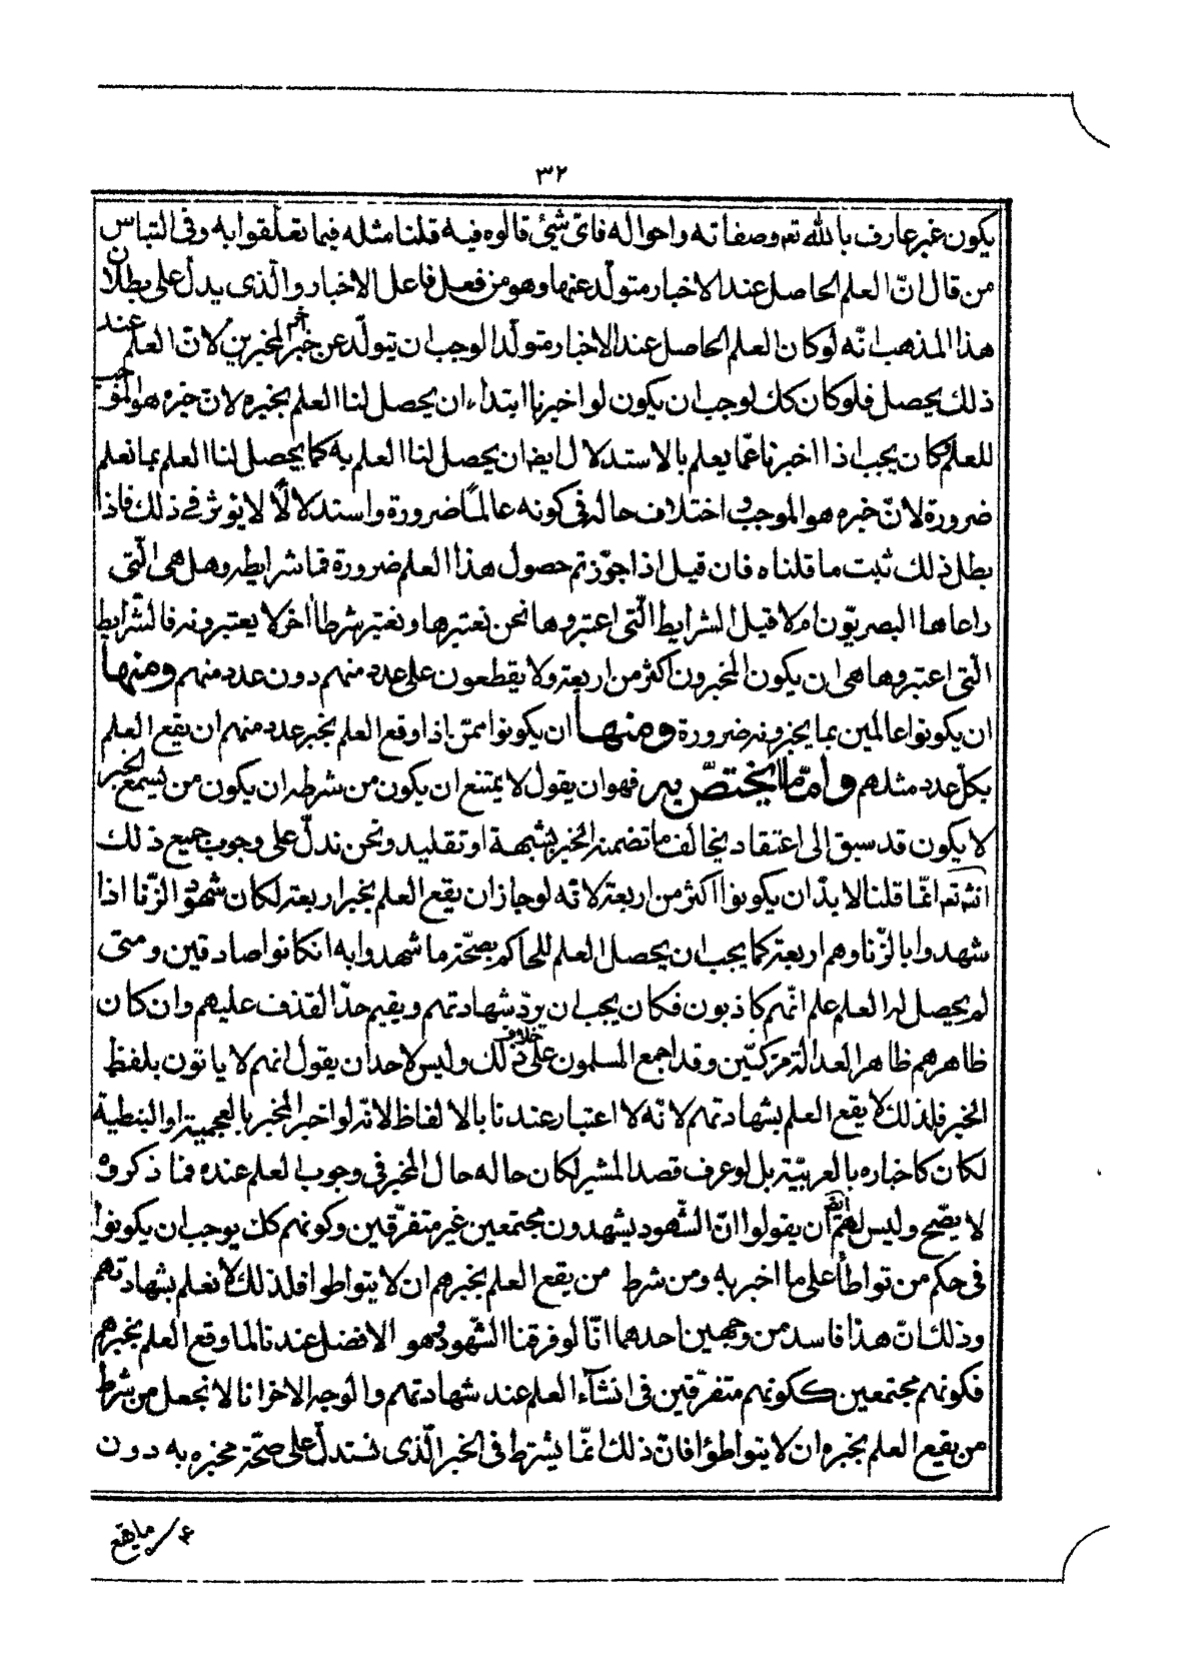 ٣٢
يكون غير عارف بالله تعم وصفاته واحواله فاىّ شئ قالوه فيه قلنا مثله فيما تعلّقوا به وفى الناس
من قال انّ العلم الحاصل عند الاخبار متولّد عنها وهو من فعل فاعل الاخبار والّذى يدلّ على بطلان
هذا المذهب انّه لو كان العلم الحاصل عند الاخبار متولّدا لوجب ان يتولّد عن خبر اخر المخبرين لانّ العلم عند
ذلك يحصل فلو كان كك لوجب ان يكون لو اخبرنا ابتداء ان يحصل لنا العلم بخبره لانّ خبره هو الموجب
للعلم فكان يجب اذا اخبرنا عمّا يعلم بالاستدلال ايضا ان يحصل لنا العلم به كما يحصل لنا العلم بما نعلم
ضرورة لانّ خبره هو الموجب واختلاف حاله فى كونه عالمًا ضرورة واستدلالًا لا يؤثر فى ذلك فاذا
بطل ذلك ثبت ما قلناه فان قيل اذا جوّزتم حصول هذا العلم ضرورة فما شرايطه وهل هى الّتى
راعاها البصريّون ام لا قيل الشرايط الّتى اعتبروها نحن نعتبرها ونعتبر شرطا اخر لا يعتبرونه فالشّرايط
الّتى اعتبروها هى ان يكون المخبرون اكثر من اربعة ولا يقطعون على عدد منهم دون عدد منهم ومنها
ان يكونوا عالمين بما يخبرونه ضرورة ومنها ان يكونوا ممّن اذا وقع العلم بخبر عدد منهم ان يقع العلم
بكلّ عدد مثلهم وامّا ما يختصّ به فهو ان يقول لا يمتنع ان يكون من شرطه ان يكون من يسمع الخبر
لا يكون قد سبق الى اعتقاد يخالف ما تضمنه الخبر بشبهة او تقليد ونحن ندلّ على وجوب جميع ذلك
انشتعم انمّا قلنا لا بدّ ان يكونوا اكثر من اربعة لانّه لو جاز ان يقع العلم بخبر اربعة لكان شهود الزّنا اذا
شهدوا بالزّنا وهم اربعة كما يجب ان يحصل العلم للحاكم بصحّة ما شهدوا به انكانوا صادقين ومتى
لم يحصل له العلم علم انّهم كاذبون فكان يجب ان يردّ شهادتهم ويقيم حدّ القذف عليهم وان كان
ظاهرهم ظاهر العدالة مزكّين وقد اجمع المسلمون على خلاف ذلك وليس لاحد ان يقول انهم لا ياتون بلفظ
الخبر فلذلك لا يقع العلم بشهادتهم لانّه لا اعتبار عندنا بالالفاظ لانّه لو اخبر المخبر بالعجمية او النبطية
لكان كاخباره بالعربيّة بل لو عرف قصد المشير لكان حاله حال المخبر فى وجوب العلم عنده فما ذكروه
لا يصّح وليس لهم ايضا ان يقولوا انّ الشّهود يشهدون مجتمعين غير متفرّقين وكونهم كك يوجب ان يكونوا
فى حكم من تواطأ على ما اخبر به ومن شرط من يقع العلم بخبرهم ان لا يتواطوا فلذلك لا نعلم بشهادتهم
وذلك انّ هذا فاسد من وجهين احدهما انّا لو فرقنا الشّهود وهو الافضل عندنا لما وقع العلم بخبرهم
فكونهم مجتمعين ككونهم متفرّقين فى انتفاء العلم عند شهادتهم والوجه الاخر انا لا نجعل من شرط
من يقع العلم بخبره ان لا يتواطؤا فانّ ذلك انمّا يشترط فى الخبر الّذى نستدلّ على صحّة مخبره به دون
ما يقع